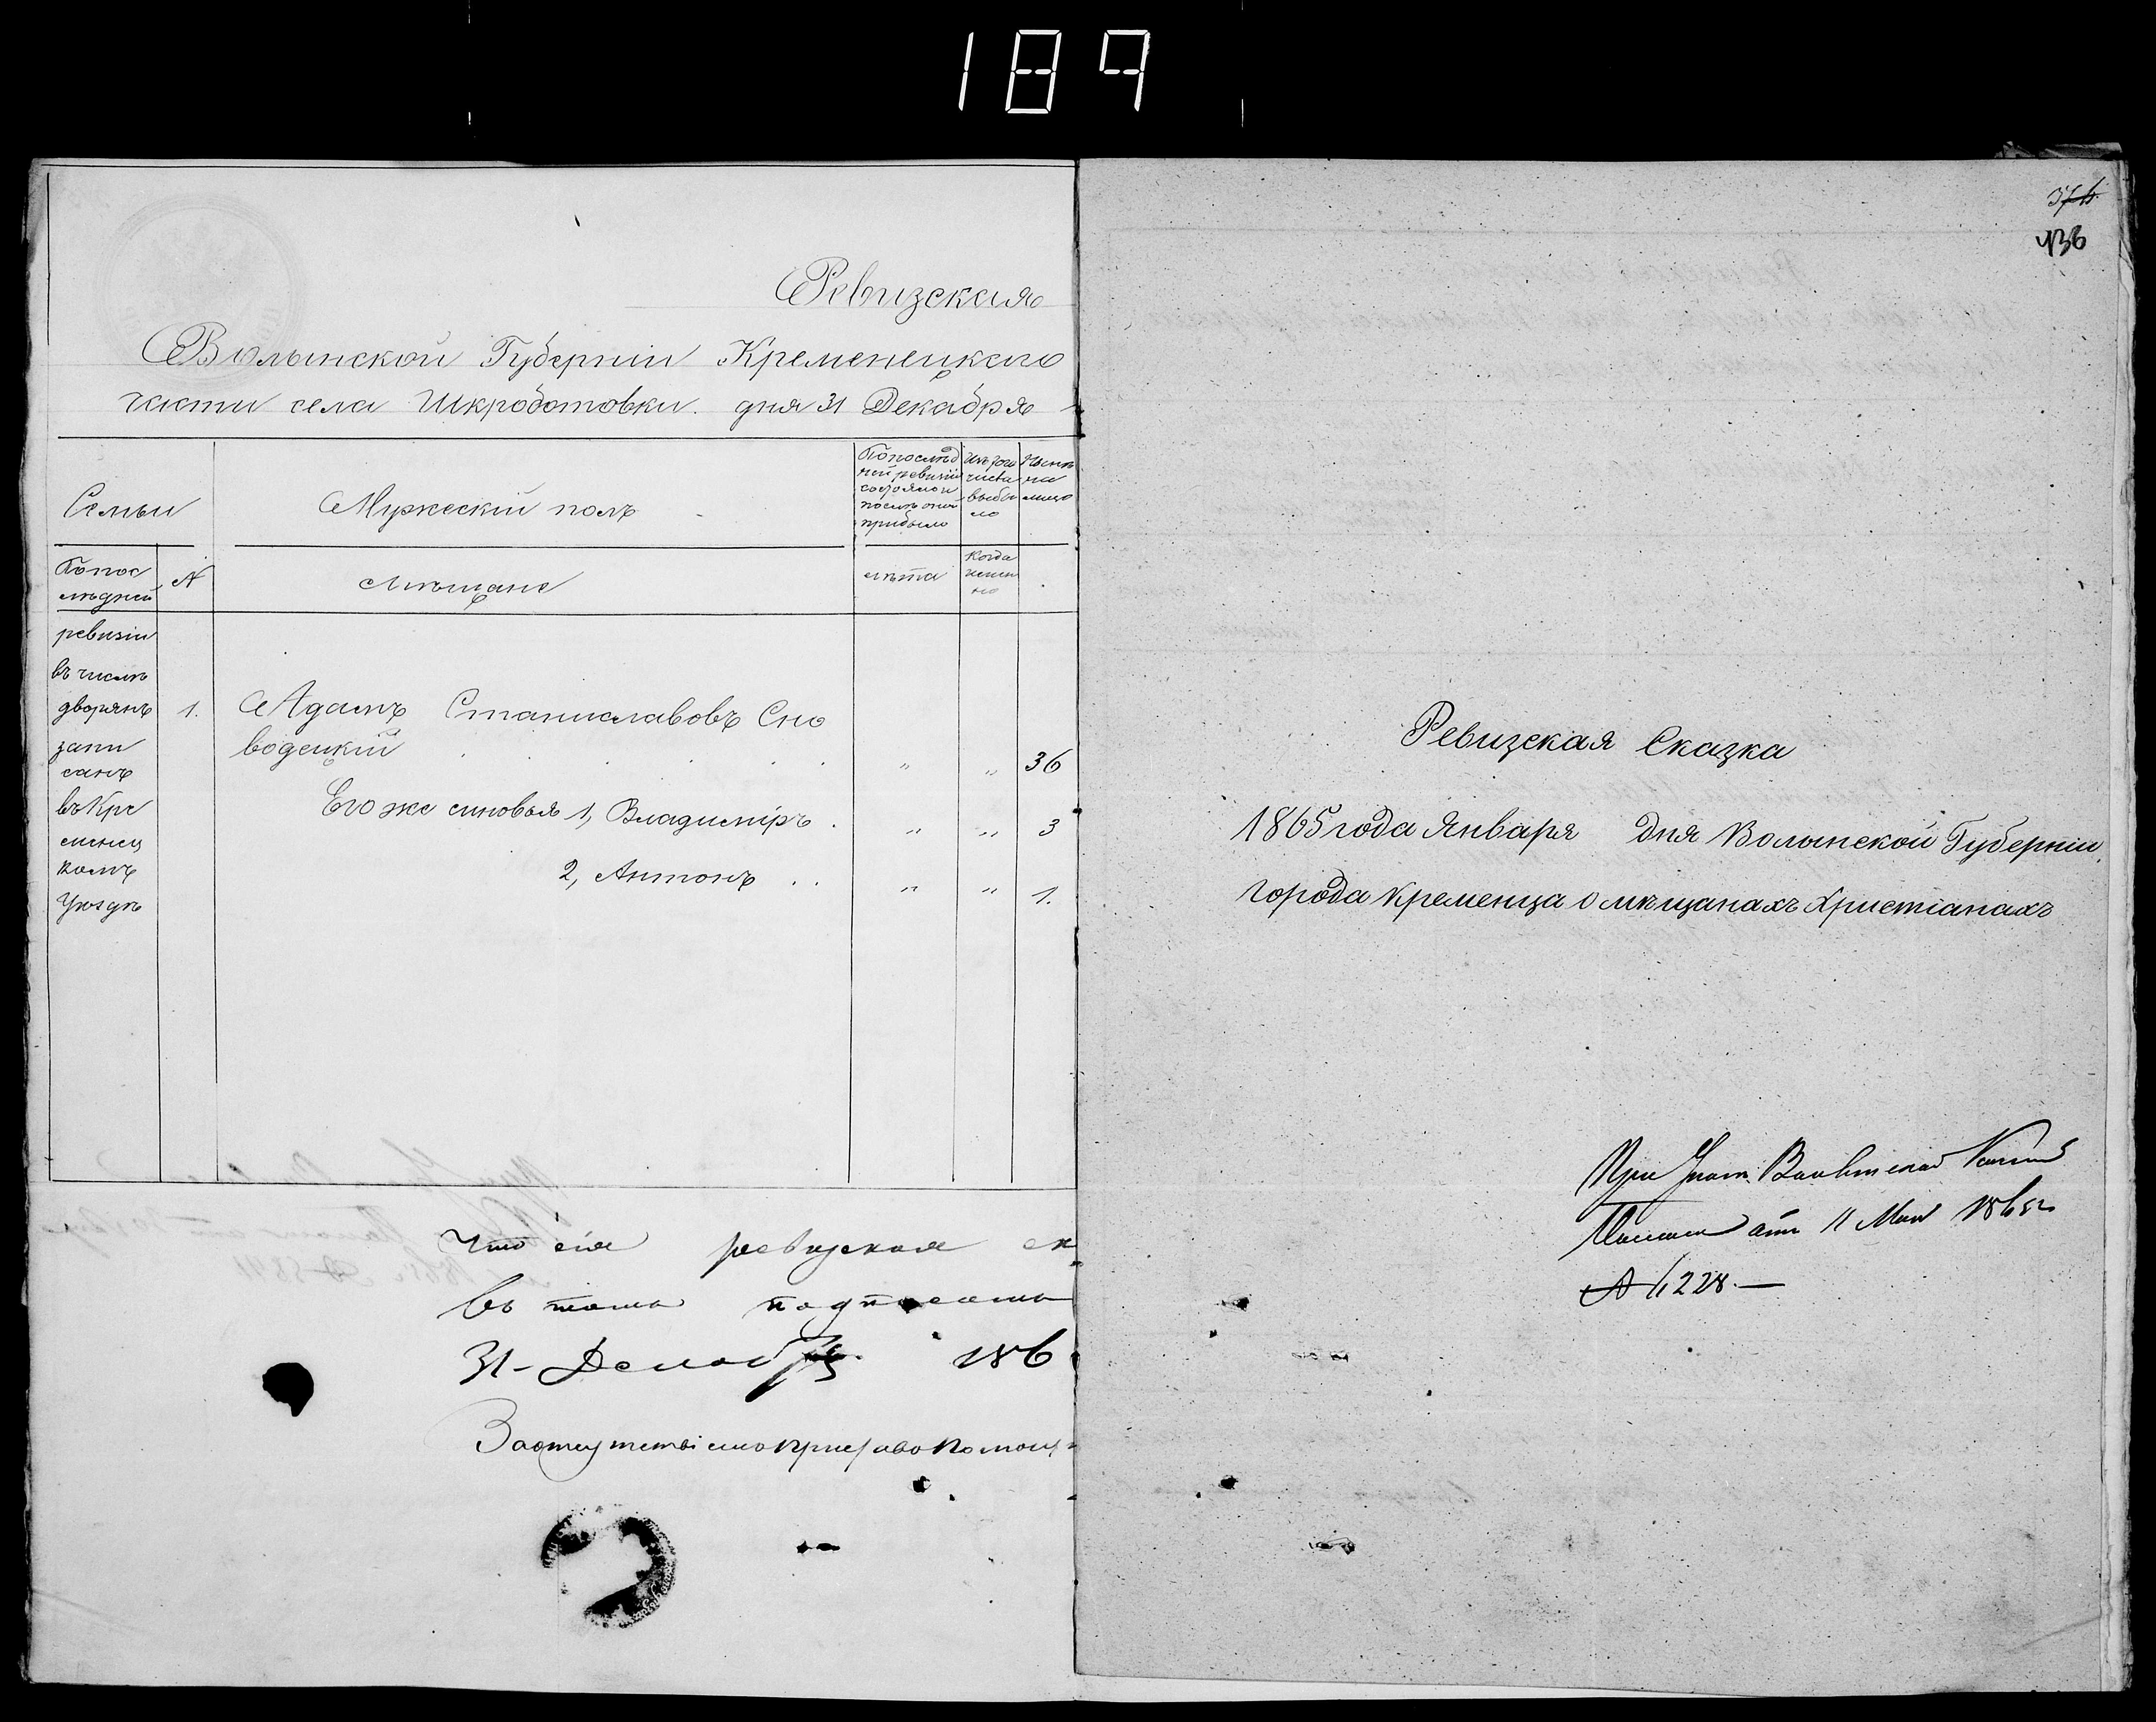 189
Ревизская
Волынской Губерніи Кременецкаго
части села Шкроботовки. дня 31 Декабря
Семьи
Мужескій полъ
По послѣд
ней ревизіи
состояло и
послѣ оной
прибыло
Изъ того
числа
выбы
ло
Нынѣ
на
лицо
По пос
лѣдней
№
Мѣщане
лѣта
Когда
имен
но
ревизіи
въ числѣ
дворянъ
запи
санъ
въ Кре
менец
комъ
Уѣздѣ
1. Адамъ Станиславовъ Сно
водецкій . . . . . " " 36
Его же сыновья 1, Владиміръ . " " 3
2, Антонъ . . " " 1.
Что сія ревизская ск
въ томъ подписомъ
31 - Декабря 186
136
Ревизская Сказка
1865 года Января дня Волынской Губерніи
города Кременца о мѣщанахъ Христіанахъ
При
отъ 11 Мая 1865 г
№ 11228.—